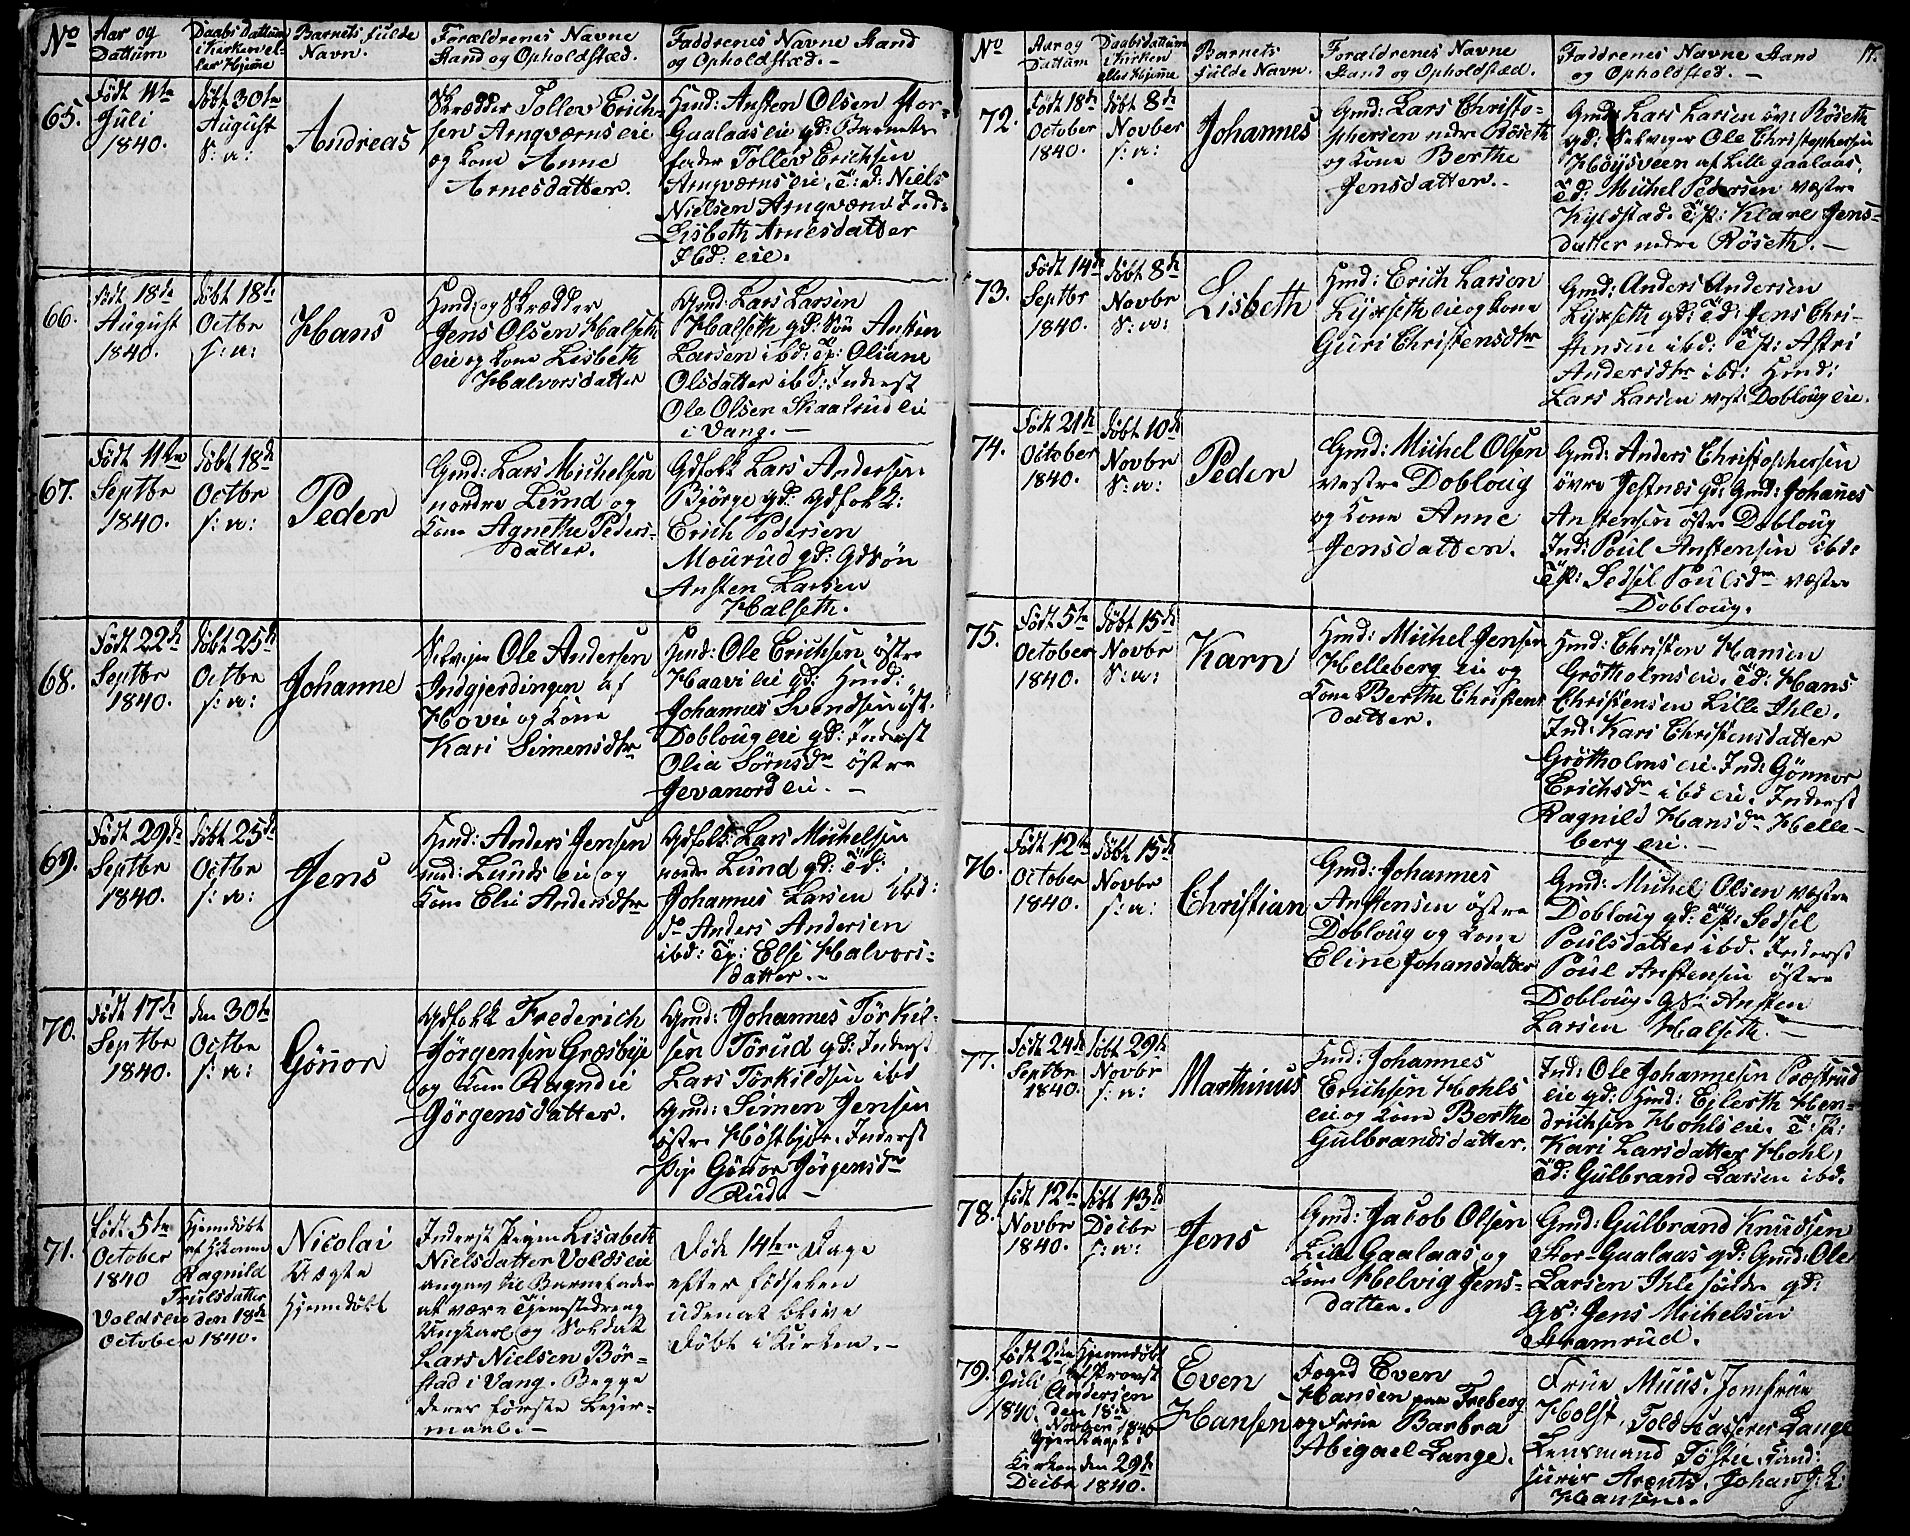 No
Aar og
Dattum
Daabs Dattum
i Kirken el-
ler Hjeme
Barnets fulde
Navn.
Forældrenes Navne
Stand og Opholdstæd.
Faddrenes Navne Stand
og Opholdstæd. -
65.
Født 11te
Juli
1840.
døbt 30te
August
s: a:
Andreas
Skrædder Tollev Erich-
sen Arnqværns eie
og Kone Anne
Arnesdatter.
Hmd: Ansten Olsen Stor-
Gaalaas eie gd: Barnets
fader Tollev Erichsen
Arnqværns eie. T: d: Niels
Nielsen Arnqværn Ind:
Lisbeth Arnesdatter
Ibd: eie.
66.
født 18de
August
1840.
døbt 18de
Octbr
s: a:
Hans
Hmd: og Skrædder
Jens Olsen Halseth
eie og Kone Lisbeth
Halvorsdatter
Gmd: Lars Larsen
Halseth gd: Søn Ansten
Larsen ibd: Tp: Oliane
Olsdatter ibd: Inderst
Ole Olsen Skaalrud eie
i Vang. -
67.
Født 11te
Septbr
1840.
døbt 18de
Octbr
s: a:
Peder
Gmd: Lars Michelsen
nordre Lund og
Kone Agnethe Peders-
datter.
Gdfolk Lars Andersen
Bjørge gd: Gdfolk:
Erich Pedersen
Mourud gd: Gdsøn
Ansten Larsen
Halseth.
68.
Født 22de
Septbr
1840.
døbt 25de
Octbr
s: a:
Johanne
Selvejer Ole Andersen
Indgjerdingen af
Hovie og Kone
Kari Simensdtr
Hmd: Ole Erichsen østre
Haavi eie gd: Hmd:
Johannes Svendsen øst.
Dobloug eie gd: Inderst
Olia Sørnsdr østre
Jevanord eie. -
69.
Født 29de
Septbr
1840.
døbt 25de
Octbr
s: a:
Jens
Hmd: Anders Jensen
nord: Lunds eie og
Kone Elie Andersdtr
Gdfolk: Lars Michelsen
nordre Lund gd: Td:
Johannes Larsen ibd:
Do Anders Andersen
ibd: Tp: Else Halvors-
datter. -
70.
født 17de
Septbr
1840.
den 30te
Octbr
s: a:
Gøn̄or
Gdfolk Frederich
Jørgensen Græsbye
og Kone Ragndie
Jørgensdatter.
Gmd: Johannes Tørkil-
sen Tørud gd: Inderst
Lars Tørkildsen ibd
Gmd: Simen Jensen
østre Høstbjør. Inderst
Pige Gøn̄or Jørgensdr
Rud. -
71.
født 5te
October
1840
Hjemdøbt
af Konen
Ragnild
Truls datter
Voldseie den 18de
October 1840.
Nicolai
Uægte
Hjemdøbt
Inderst Pigen Lisabeth
Nielsdatter Voldseie
angav til Barnefader
at være Tjenstedreng
Ungkarl og Soldat
Lars Nielsen Bør-
stad i Vang. Begge
deres første Lejer-
maal. -
Døde 14ten Dage
efter Fødselen
uden at blive
døbt i Kirken. -
No
Aar og
Dattum
Daabsdattum
i Kirken
eller Hjeme
Barnets
fulde Navn.
Forældrenes Navne
Stand og Opholdstæd.
Faddrenes Navne Stand
og Opholdstæd. -
17.
72.
Født 18de
October
1840.
døbt 8de
Novber
s: a:
Johannes
Gmd: Lars Christo-
phersen nedre Røseth
og Kone Berthe
Jensdatter.
Gmd: Lars Larsen øvr. Røseth
gd: Selveger Ole Christophersen
Høysveen af Lille gaalaas.
Td: Michel Pedersen Væstre
Kyldstad. Tp: Klare Jens-
datter nedre Røseth. -
73.
Født 14de
Septbr
1840.
døbt 8de
Novbr
s: a:
Lisbeth
Hmd: Erich Larsen
Lyxseth eie og Kone
Guri Christensdtr
Gmd: Anders Andersen
Lyxseth gd: Td: Jens Chri-
stensen ibd: Tp: Astri
Andersdtr ibd: Hmd:
Lars Larsen vest. Dobloug eie.
74.
Født 21de
October
1840.
døbt 10de
Novbr
s: a:
Peder
Gmd: Michel Olsen
Vestre Dobloug
og Kone Anne
Jensdatter.
Gmd: Anders Christophersen
øvre Jestnæs gd: Gmd: Johan̄es
Anstensen østre Dobloug
Ind: Poul Anstensen ibd:
Tp: Sedsel Poulsdr væstre
Dobloug.
75.
Født 5te
October
1840.
døbt 15de
Novbr
s: a:
Karn
Hmd: Michel Jensen
Helleberg eie og
Kone Berthe Christens
datter.
Hmd: Christen Hansen
Grøtholms eie. Td: Hans
Christensen Lille Ihle.
Ind: Kari Christensdatter
Grøtholms eie. Ind: Gønnor
Erichsdr ibd eie. Inderst
Ragnild Hansdr Helle-
berg eie. -
76.
Født 12te
October
1840.
døbt 15de
Novbr
s: a:
Christian
Gmd: Johannes
Anstensen østre
Dobloug og Kone
Eline Johansdatter
Gmd: Michel Olsen Væstre
Dobloug gd: Tp: Sedsel
Poulsdatter ibd. Inderst
Poul Anstensen østre
Dobloug. gs: Ansten
Larsen Halseth. -
77.
Født 24de
Septbr
1840.
døbt 29de
Novbr
s: a:
Marthinus
Hmd: Johannes
Erichsen Hohls
eie og Kone Berthe
Gulbrandsdatter.
Ind: Ole Johannesen Præstrud
eie gd: Hmd: Ejlerth Hen-
drichsen Hohls eie. T: P:
Kari Larsdatter Hohl,
Td: Gulbrand Larsen ibd.
78.
født 12te
Novbr
1840.
døbt 13de
Decbr
s: a:
Jens
Gmd: Jacob Olsen
Lille Gaalaas og
Kone Helvig Jens-
datter.
Gmd: Gulbrand Knudsen
Stor-Gaalaas gd: Gmd: Ole
Larsen Ihle søndre gd:
gs: Jens Michelsen
Stramrud.
79.
født 2den
Juli
1840.
Hjemdøbt
af Provst
Andersen
den 18de
Novber 1840
Kirken den 29de
Decbr 1840.
Even
Hansen
Foged Even
Hansen paa Freberg
og Frue Barbra
Abigael Lange.
Frue Muus, Jomfrue
Holst, Toldkasserer Lange
Lensmand Tøstie, Cand:
juris Arentz, Johan J: L:
Hansen.